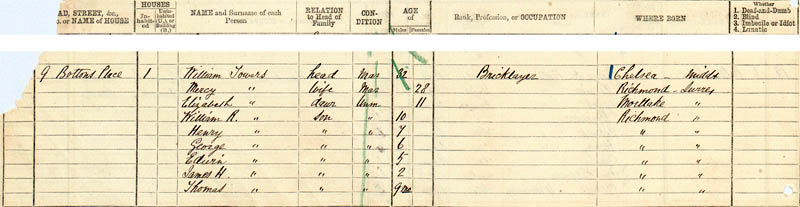 AD, STREET, &c., or NAME of HOUSE HOUSES In-habit-ed Unin-habited (U.), or Building (B.) NAME and Surname of each Person RELATION to Head of Family CON-DITION AGE of Males Females Rank, Profession, or OCCUPATION WHERE BORN Whether 1. Deaf-and-Dumb 2. Blind 3. Imbecile or Idiot 4. Lunatic
9 Bottons Place 1 William Towers head Mar 32 Bricklayer Chelsea - Middx
Mercy " Wife Mar 28 Richmond - Surrey
Elizabeth " daur Unm 11 Mortlake "
William R. " son " 10 Richmond "
Henry " " " 7 " "
George " " " 6 " "
Edwin " " " 5 " "
James H. " " " 2 " "
Thomas " " " 9 mo " "